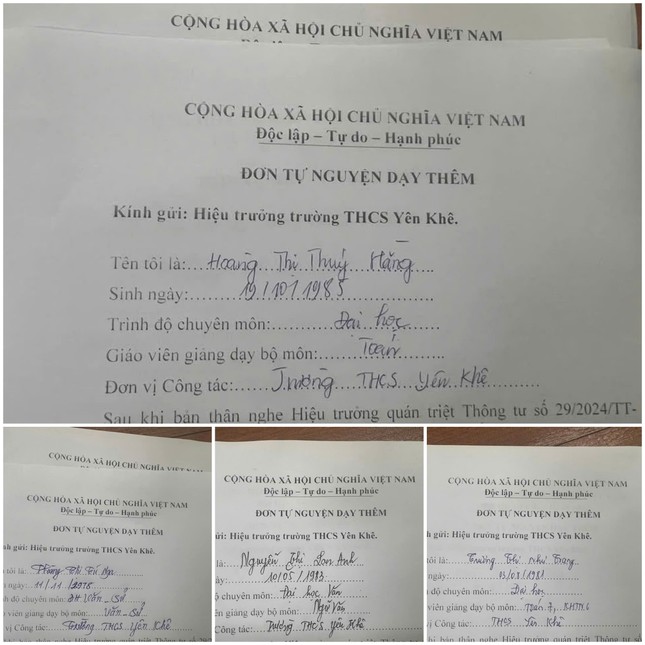 CỘNG HÒA XÃ HỘI CHỦ NGHĨA VIỆT NAM
CỘNG HÒA XÃ HỘI CHỦ NGHĨA VIỆT NAM
Độc lập – Tự do – Hạnh phúc
ĐƠN TỰ NGUYỆN DẠY THÊM
Kính gửi: Hiệu trưởng trường THCS Yên Khê.
Tên tôi là: Hoàng Thị Thuý Hằng
Sinh ngày: 19/10/1985
Trình độ chuyên môn: Đại học
Giáo viên giảng dạy bộ môn: Toán
Đơn vị Công tác: Trường THCS Yên Khê
Sau khi bản thân nghe Hiệu trưởng quán triệt Thông tư số 29/2024/TT-
CỘNG HÒA XÃ HỘI CHỦ NGHĨA VIỆT NAM
CỘNG HÒA XÃ HỘI CHỦ NGHĨA VIỆT NAM
Độc lập – Tự do – Hạnh phúc
ĐƠN TỰ NGUYỆN DẠY THÊM
nh gửi: Hiệu trưởng trường THCS Yên Khê.
n tôi là: Thị
h ngày: 11/11
h độ chuyên môn: ĐH Văn - Sử
o viên giảng dạy bộ môn: Văn - Sử
vị Công tác: Trường THCS Yên Khê
CỘNG HÒA XÃ HỘI CHỦ NGHĨA VIỆT NAM
Độc lập – Tự do – Hạnh phúc
ĐƠN TỰ NGUYỆN DẠY THÊM
gửi: Hiệu trưởng trường THCS Yên Khê.
là: Nguyễn Thị Lan Anh
ngày: 10/05/1983
chuyên môn: Đại học Văn
iên giảng dạy bộ môn: Ngữ Văn
Công tác: Trường THCS Yên Khê
CỘNG HÒA XÃ HỘI CHỦ NGHĨA VIỆT NAM
Độc lập – Tự do – Hạnh phúc
ĐƠN TỰ NGUYỆN DẠY THÊM
gửi: Hiệu trưởng trường THCS Yên Khê.
ôi là: Trương Thị Như Trang
ngày: /1981
độ chuyên môn: Đại học
viên giảng dạy bộ môn: Toán
Công tác: THCS Yên Khê